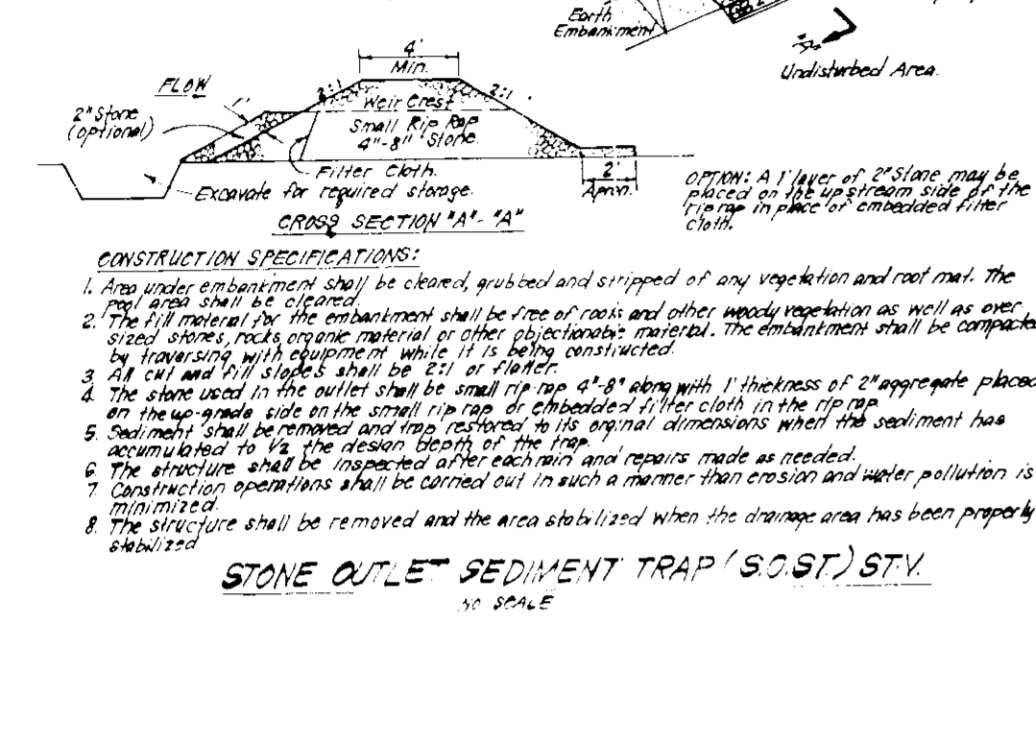 Earth
Embankment
Undisturbed Area.
4'
Min.
FLOW
1'
2:1
2:1
2" Stone
(optional)
Weir Crest
Small Rip Rap
4"-8" Stone
Filter Cloth.
2'
Apron.
Excavate for required storage.
CROSS SECTION "A"-"A"
OPTION: A 1' layer of 2" Stone may be
placed on the upstream side of the
rip rap in place of embedded filter
cloth.
CONSTRUCTION SPECIFICATIONS:
1. Area under embankment shall be cleared, grubbed and stripped of any vegetation and root mat. The
pool area shall be cleared.
2. The fill material for the embankment shall be free of roots and other woody vegetation as well as over
sized stones, rocks, organic material or other objectionable material. The embankment shall be compacted
by traversing with equipment while it is being constructed.
3 All cut and fill slopes shall be 2:1 or flatter.
4. The stone used in the outlet shall be small rip-rap 4"-8" along with 1' thickness of 2" aggregate placed
on the up-grade side on the small rip rap or embedded filter cloth in the rip rap.
5. Sediment shall be removed and trap restored to its orginal dimensions when the sediment has
accumulated to 1/2 the design depth of the trap.
6 The structure shall be inspected after each rain and repairs made as needed.
7. Construction operations shall be carried out in such a manner than erosion and water pollution is
minimized.
8. The structure shall be removed and the area stabilized when the drainage area has been properly
stabilized
STONE OUTLET SEDIMENT TRAP (S.O.S.T.) ST.V.
NO SCALE